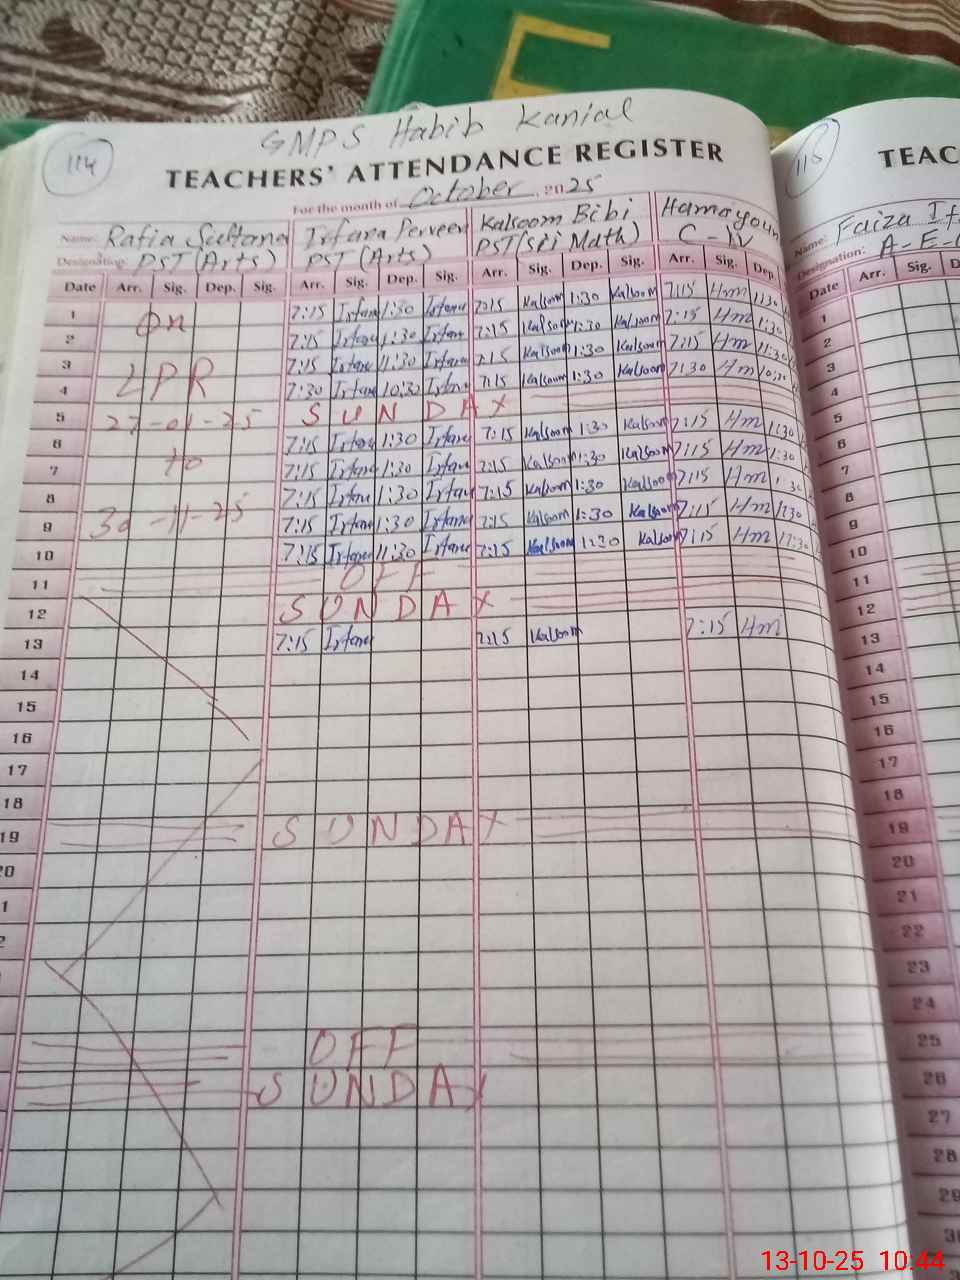 GMPS Habib Kanial
114
TEACHERS' ATTENDANCE REGISTER
For the month of October, 2025
Name: Rafia Sultana Irfana Perveen Kalsoom Bibi Hamayoun
Designation: PST (Arts) PST (Arts) PST (Sci Math) C-IV
Date Arr. Sig. Dep. Sig. Arr. Sig. Dep. Sig. Arr. Sig. Dep. Sig. Arr. Sig. Dep.
1 On 7:15 Irfana 1:30 Irfana 7:15 Kalsoom 1:30 Kalsoom 7:15 Hm 1:30
2 7:15 Irfana 1:30 Irfana 7:15 Kalsoom 1:30 Kalsoom 7:15 Hm 1:30
3 LPR 7:15 Irfana 11:30 Irfana 7:15 Kalsoom 1:30 Kalsoom 7:15 Hm 11:30
4 7:30 Irfana 10:30 Irfana 7:15 Kalsoom 1:30 Kalsoom 7:30 Hm
5 27-01-25 SUNDAY
6 7:15 Irfana 1:30 Irfana 7:15 Kalsoom 1:30 Kalsoom 7:15 Hm 1:30
7 to 7:15 Irfana 1:30 Irfana 7:15 Kalsoom 1:30 Kalsoom 7:15 Hm 1:30
8 7:15 Irfana 1:30 Irfana 7:15 Kalsoom 1:30 Kalsoom 7:15 Hm 1:30
9 30-11-25 7:15 Irfana 1:30 Irfana 7:15 Kalsoom 1:30 Kalsoom 7:15 Hm 1:30
10 7:15 Irfana 11:30 Irfana 7:15 Kalsoom 1:30 Kalsoom 7:15 Hm 11:30
11 OFF
12 SUNDAY
13 7:15 Irfana 7:15 Kalsoom 7:15 Hm
14
15
16
17
18
19 SUNDAY
20
OFF
SUNDAY
115
TEAC
Name: Faiza
Designation: A-E-
Date Arr. Sig. D
1
2
3
4
5
6
7
8
9
10
11
12
13
14
15
16
17
18
19
20
21
22
23
24
25
26
27
28
29
13-10-25 10:44